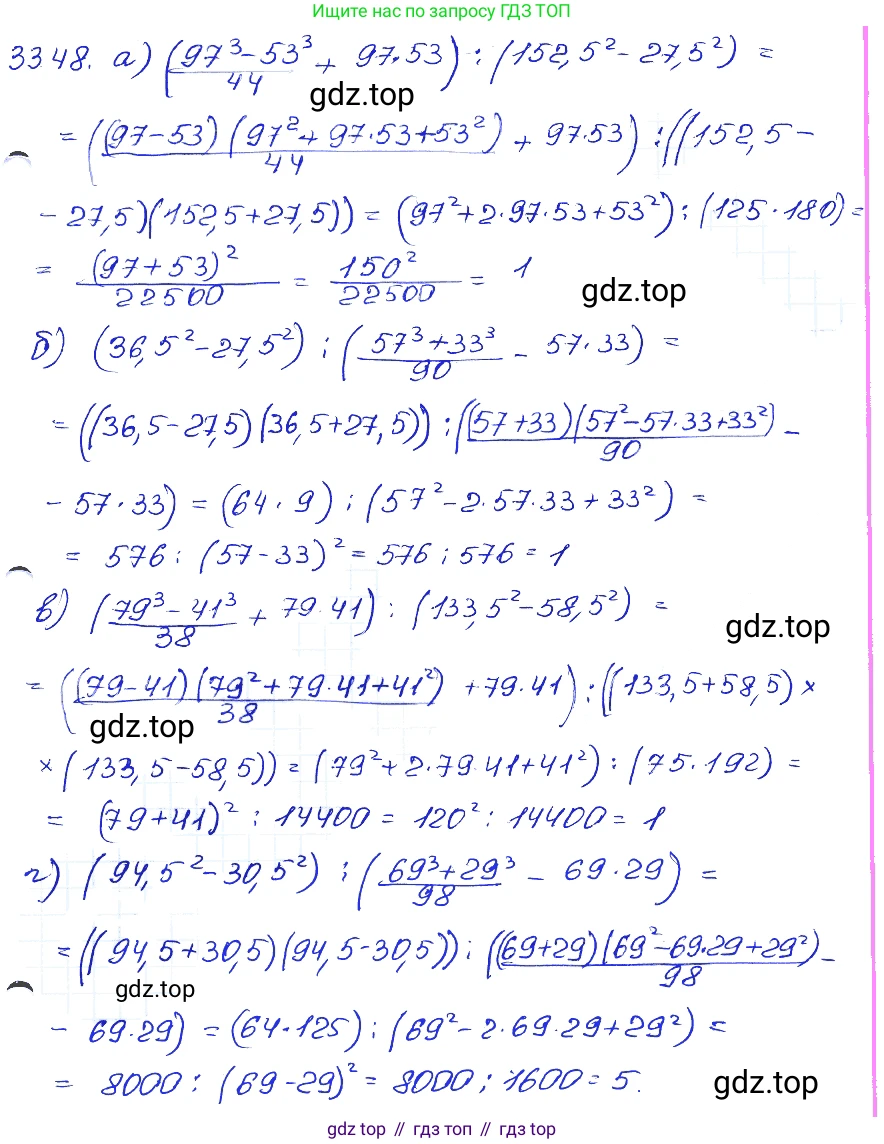 Ищите нас по запросу ГДЗ ТОП
3348. а) ((97³-53³)/44 + 97·53) : (152,5² - 27,5²) =
gdz.top
= ((97-53)(97²+97·53+53²)/44 + 97·53) : ((152,5 -
- 27,5)(152,5+27,5)) = (97²+2·97·53+53²) : (125·180) =
= (97+53)²/22500 = 150²/22500 = 1
gdz.top
б) (36,5²-27,5²) : ((57³+33³)/90 - 57·33) =
= ((36,5-27,5)(36,5+27,5)) : ((57+33)(57²-57·33+33²)/90 -
- 57·33) = (64·9) : (57²-2·57·33+33²) =
= 576 : (57-33)² = 576 : 576 = 1
в) ((79³-41³)/38 + 79·41) : (133,5²-58,5²) =
gdz.top
= ((79-41)(79²+79·41+41²)/38 + 79·41) : ((133,5+58,5) ×
gdz.top
× (133,5-58,5)) = (79²+2·79·41+41²) : (75·192) =
= (79+41)² : 14400 = 120² : 14400 = 1
г) (94,5²-30,5²) : ((69³+29³)/98 - 69·29) =
= ((94,5+30,5)(94,5-30,5)) : ((69+29)(69²-69·29+29²)/98 -
gdz.top
- 69·29) = (64·125) : (69²-2·69·29+29²) =
= 8000 : (69-29)² = 8000 : 1600 = 5.
gdz.top
gdz top // гдз топ // gdz top